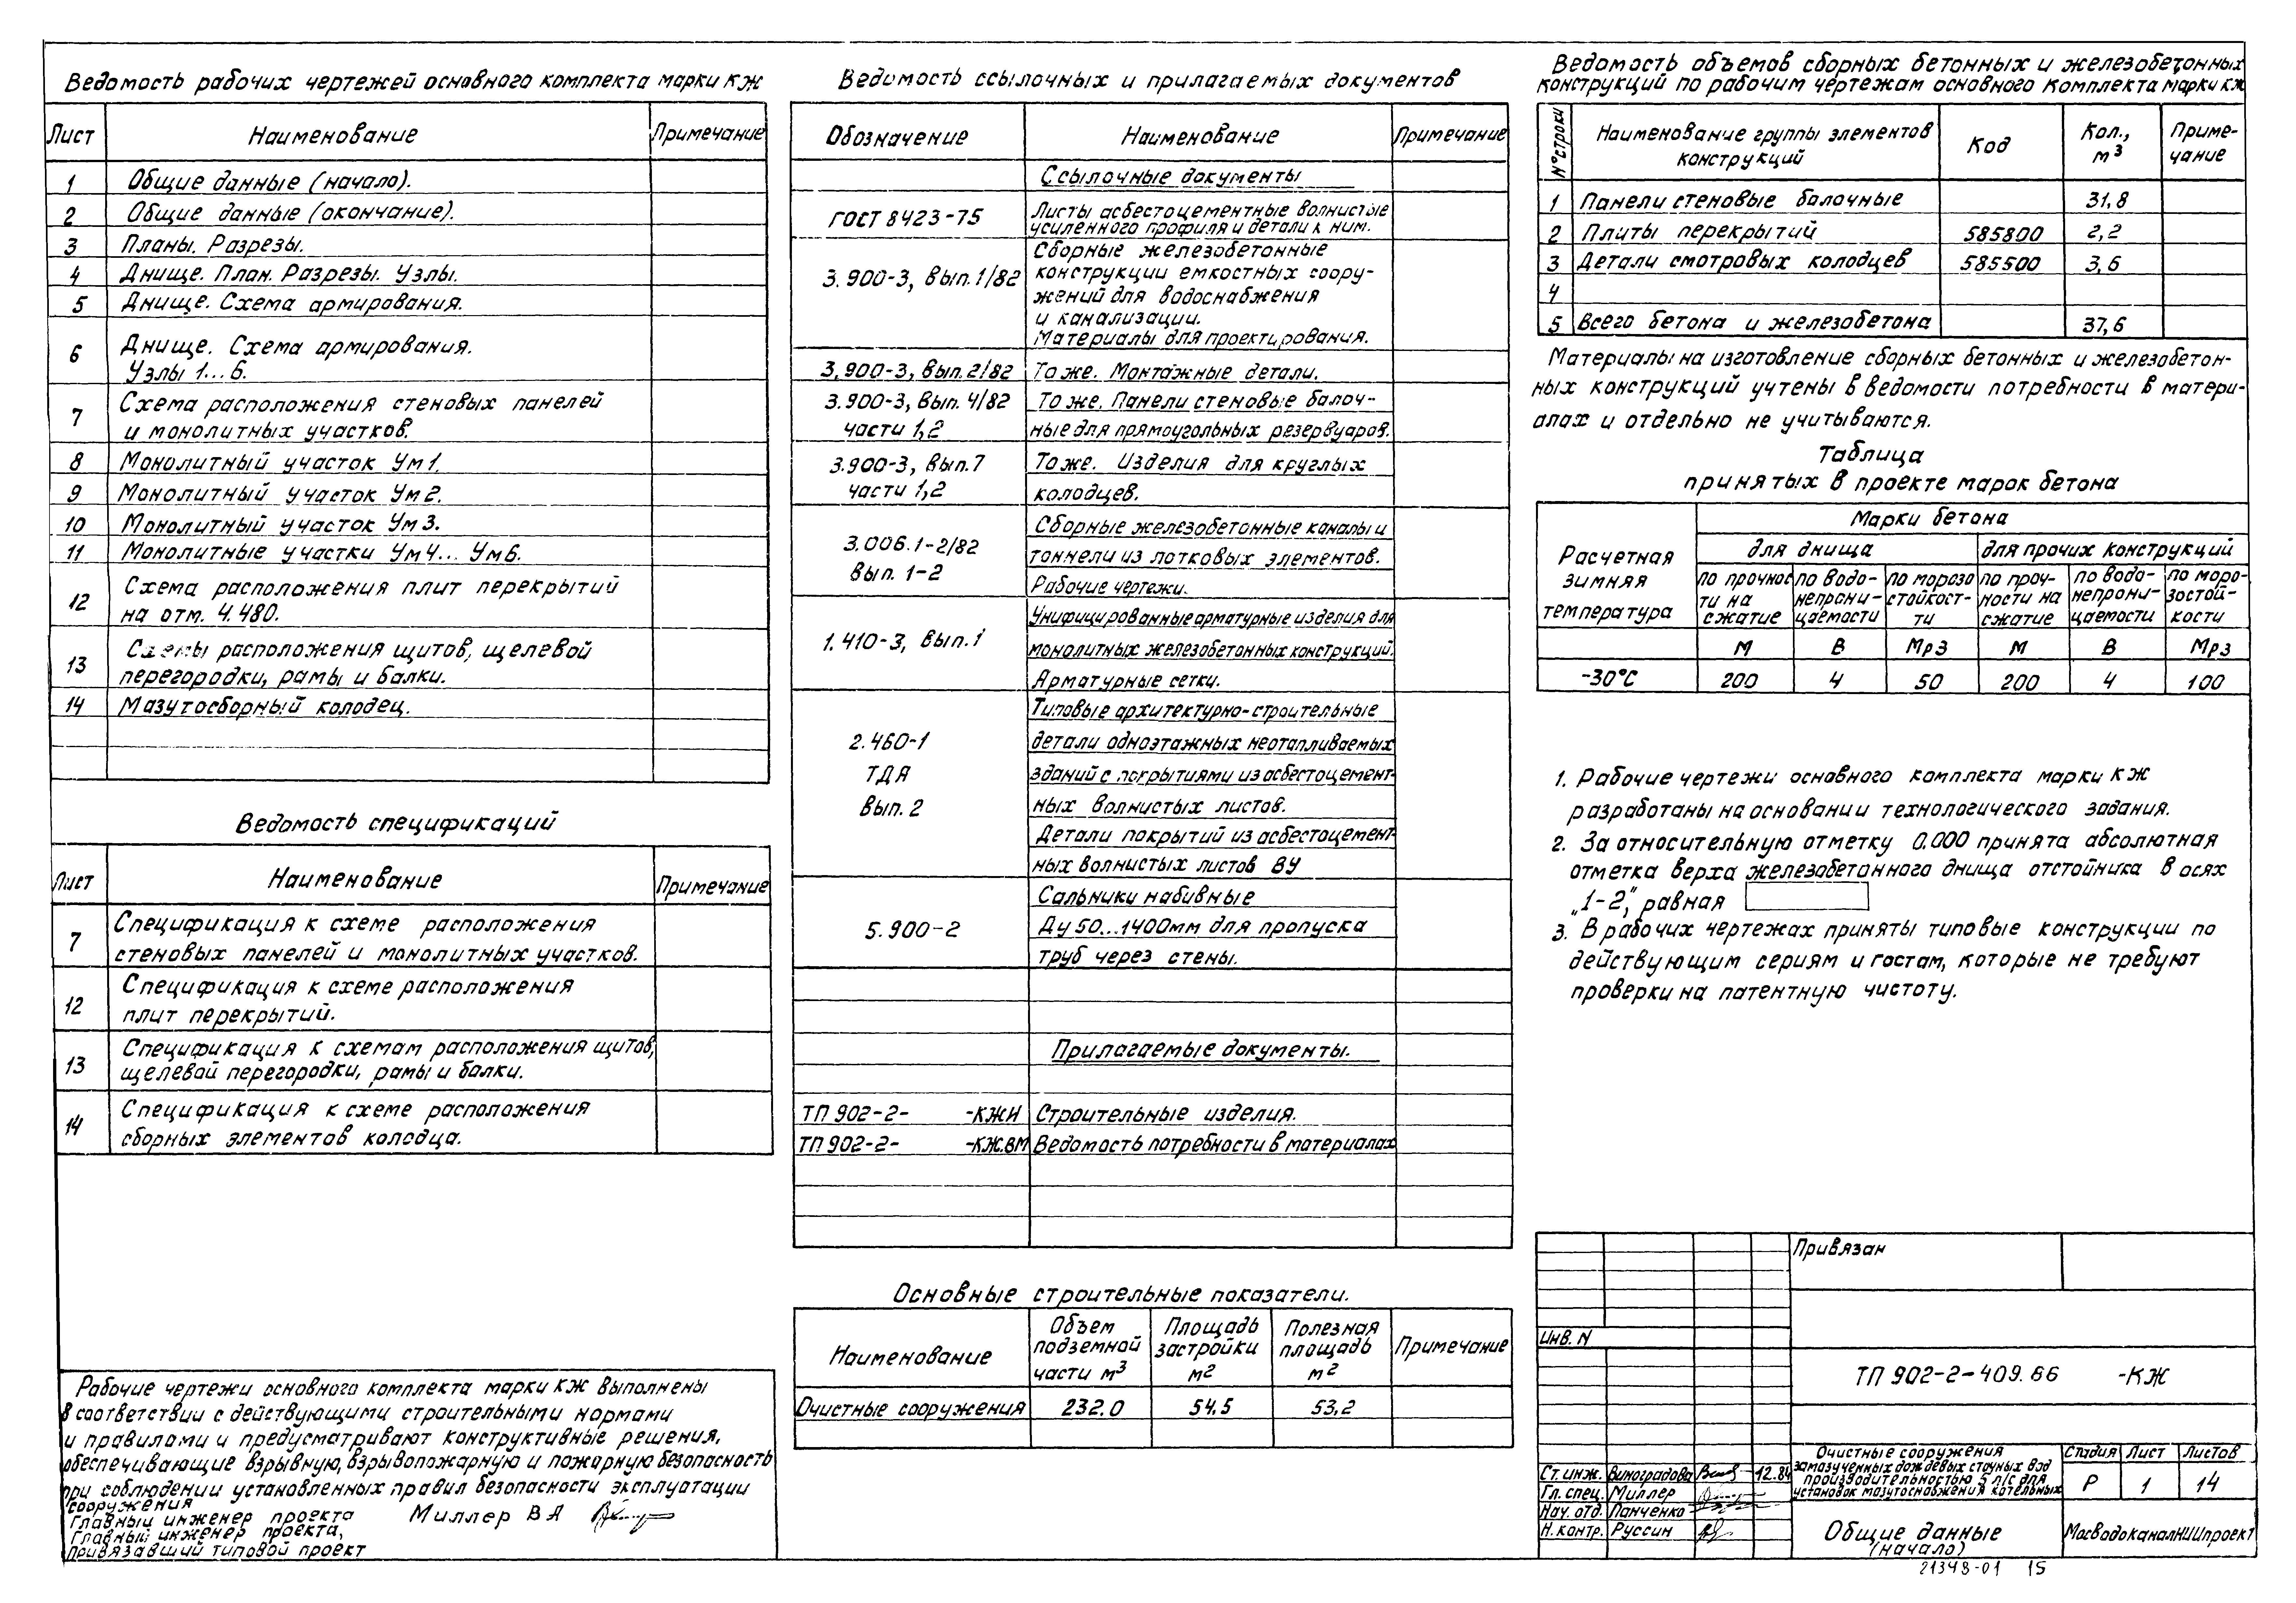 Ведомость рабочих чертежей основного комплекта марки КЖ
Лист Наименование Примечание
1 Общие данные (начало).
2 Общие данные (окончание).
3 Планы. Разрезы.
4 Днище. План. Разрезы. Узлы.
5 Днище. Схема армирования.
6 Днище. Схема армирования.
Узлы 1...6.
7 Схема расположения стеновых панелей
и монолитных участков.
8 Монолитный участок Ум1.
9 Монолитный участок Ум2.
10 Монолитный участок Ум3.
11 Монолитные участки Ум4... Ум6.
12 Схема расположения плит перекрытий
на отм. 4.480.
13 Схемы расположения щитов, щелевой
перегородки, рамы и балки.
14 Мазутосборный колодец.
Ведомость спецификаций
Лист Наименование Примечание
7 Спецификация к схеме расположения
стеновых панелей и монолитных участков.
12 Спецификация к схеме расположения
плит перекрытий.
13 Спецификация к схемам расположения щитов,
щелевой перегородки, рамы и балки.
14 Спецификация к схеме расположения
сборных элементов колодца.
Рабочие чертежи основного комплекта марки КЖ выполнены
в соответствии с действующими строительными нормами
и правилами и предусматривают конструктивные решения,
обеспечивающие взрывную, взрывопожарную и пожарную безопасность
при соблюдении установленных правил безопасности эксплуатации
сооружения
Главный инженер проекта Миллер В А
Главный инженер проекта,
привязавший типовой проект
Ведомость ссылочных и прилагаемых документов
Обозначение Наименование Примечание
Ссылочные документы
ГОСТ 8423-75 Листы асбестоцементные волнистые
усиленного профиля и детали к ним.
3.900-3, вып.1/82 Сборные железобетонные
конструкции емкостных соору-
жений для водоснабжения
и канализации.
Материалы для проектирования.
3.900-3, вып.2/82 То же. Монтажные детали.
3.900-3, вып. 4/82 То же. Панели стеновые балоч-
части 1,2 ные для прямоугольных резервуаров.
3.900-3, вып.7 То же. Изделия для круглых
части 1,2 колодцев.
3.006.1-2/82 Сборные железобетонные каналы и
вып. 1-2 тоннели из лотковых элементов.
Рабочие чертежи.
1.410-3, вып.1 Унифицированные арматурные изделия для
монолитных железобетонных конструкций.
Арматурные сетки.
2.460-1 Типовые архитектурно-строительные
ТДА детали одноэтажных неотапливаемых
вып. 2 зданий с покрытиями из асбестоцемент-
ных волнистых листов.
Детали покрытий из асбестоцемент-
ных волнистых листов ВУ
5.900-2 Сальники набивные
Ду 50...1400мм для пропуска
труб через стены.
Прилагаемые документы.
ТП 902-2- -КЖИ Строительные изделия.
ТП 902-2- -КЖ.ВМ Ведомость потребности в материалах
Основные строительные показатели.
Наименование Объем подземной части м3 Площадь застройки м2 Полезная площадь м2 Примечание
Очистные сооружения 232.0 54.5 53,2
Ведомость объемов сборных бетонных и железобетонных
конструкций по рабочим чертежам основного комплекта марки КЖ
N° строки Наименование группы элементов конструкций Код Кол., м3 Приме-чание
1 Панели стеновые балочные 31,8
2 Плиты перекрытий 585800 2,2
3 Детали смотровых колодцев 585500 3,6
4
5 Всего бетона и железобетона 37,6
Материалы на изготовление сборных бетонных и железобетон-
ных конструкций учтены в ведомости потребности в матери-
алах и отдельно не учитываются.
Таблица
принятых в проекте марок бетона
Расчетная зимняя температура Марки бетона
для днища для прочих конструкций
по прочнос ти на сжатие по водо-непрони-цаемости по морозо стойкост-ти по проч-ности на сжатие по водо-непрони-цаемости по моро-зостой-кости
М В Мрз М В Мрз
-30°С 200 4 50 200 4 100
1. Рабочие чертежи основного комплекта марки КЖ
разработаны на основании технологического задания.
2. За относительную отметку 0.000 принята абсолютная
отметка верха железобетонного днища отстойника в осях
„1-2”, равная
3. В рабочих чертежах приняты типовые конструкции по
действующим сериям и гостам, которые не требуют
проверки на патентную чистоту.
Привязан
Инв. N
ТП 902-2-409.86 -КЖ
Ст. инж. Виноградова 12.84
Гл. спец. Миллер
Нач. отд. Панченко
Н. контр. Руссин
Очистные сооружения
замазученных дождевых сточных вод
производительностью 5 л/с для
установок мазутоснабжения котельных
Стадия Лист Листов
Р 1 14
Общие данные
(начало)
МосводоканалНИИпроект
21348-01 15